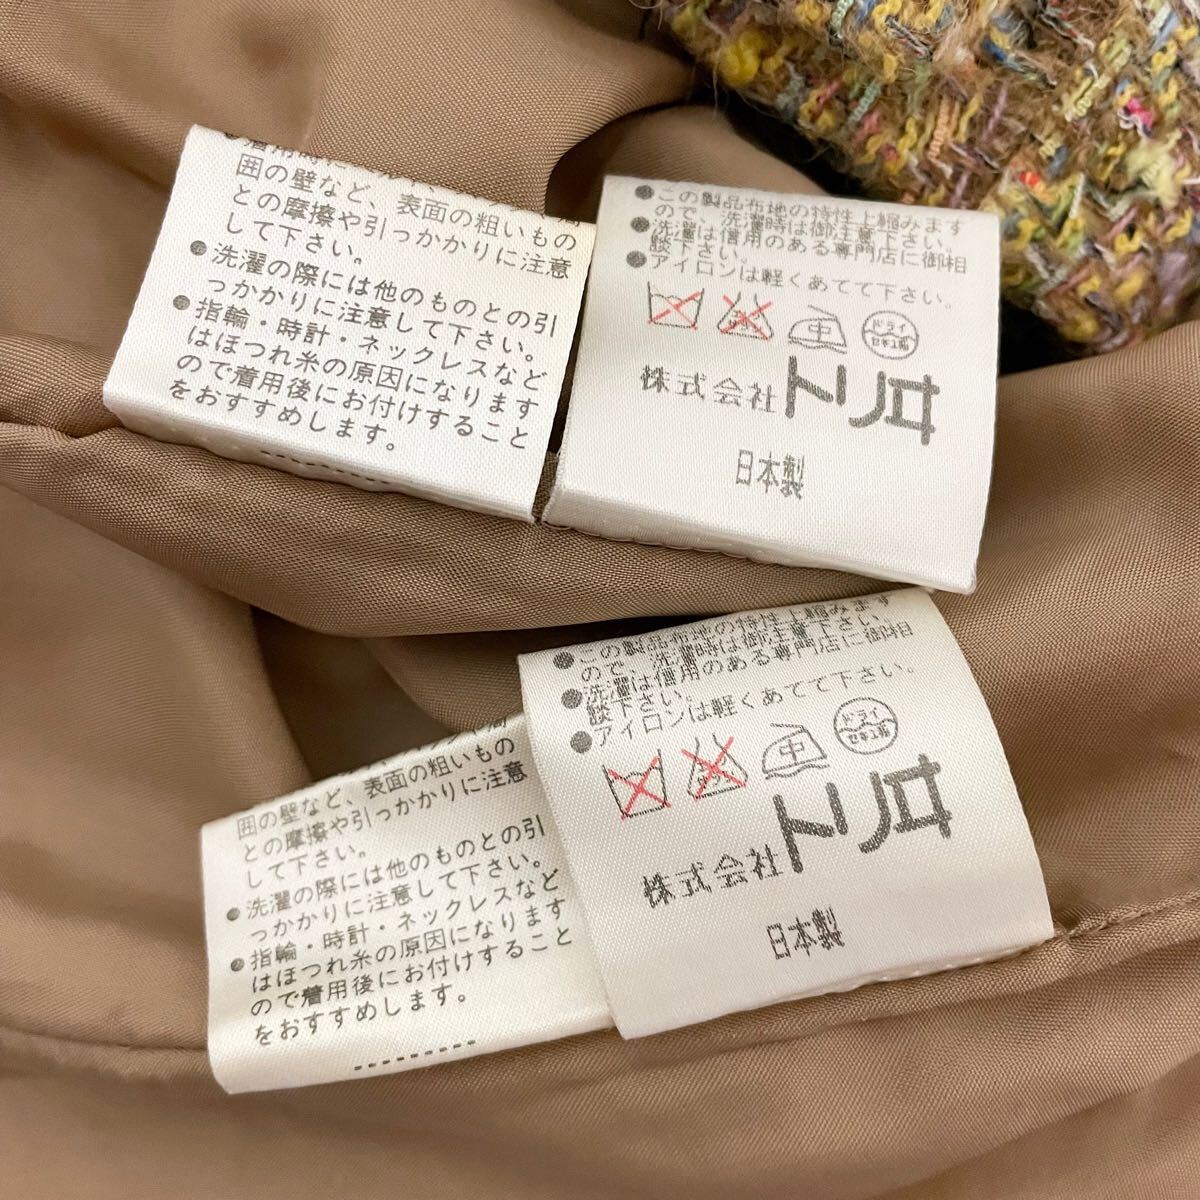 囲の壁など、表面の粗いもの
との摩擦や引っかかりに注意
して下さい。
●洗濯の際には他のものとの引
っかかりに注意して下さい。
●指輪・時計・ネックレスなど
はほつれ糸の原因になります
ので着用後にお付けすること
をおすすめします。
●この製品布地の特性上縮みます
ので、洗濯時は御注意下さい。
●洗濯は信用のある専門店に御相
談下さい。
●アイロンは軽くあてて下さい。
中
ドライ
セキユ系
株式会社トリヰ
日本製
●この製品布地の特性上縮みます
ので、洗濯時は御注意下さい。
●洗濯は信用のある専門店に御相
談下さい。
●アイロンは軽くあてて下さい。
中
ドライ
セキユ系
株式会社トリヰ
日本製
囲の壁など、表面の粗いもの
との摩擦や引っかかりに注意
して下さい。
●洗濯の際には他のものとの引
っかかりに注意して下さい。
●指輪・時計・ネックレスなど
はほつれ糸の原因になります
ので着用後にお付けすること
をおすすめします。